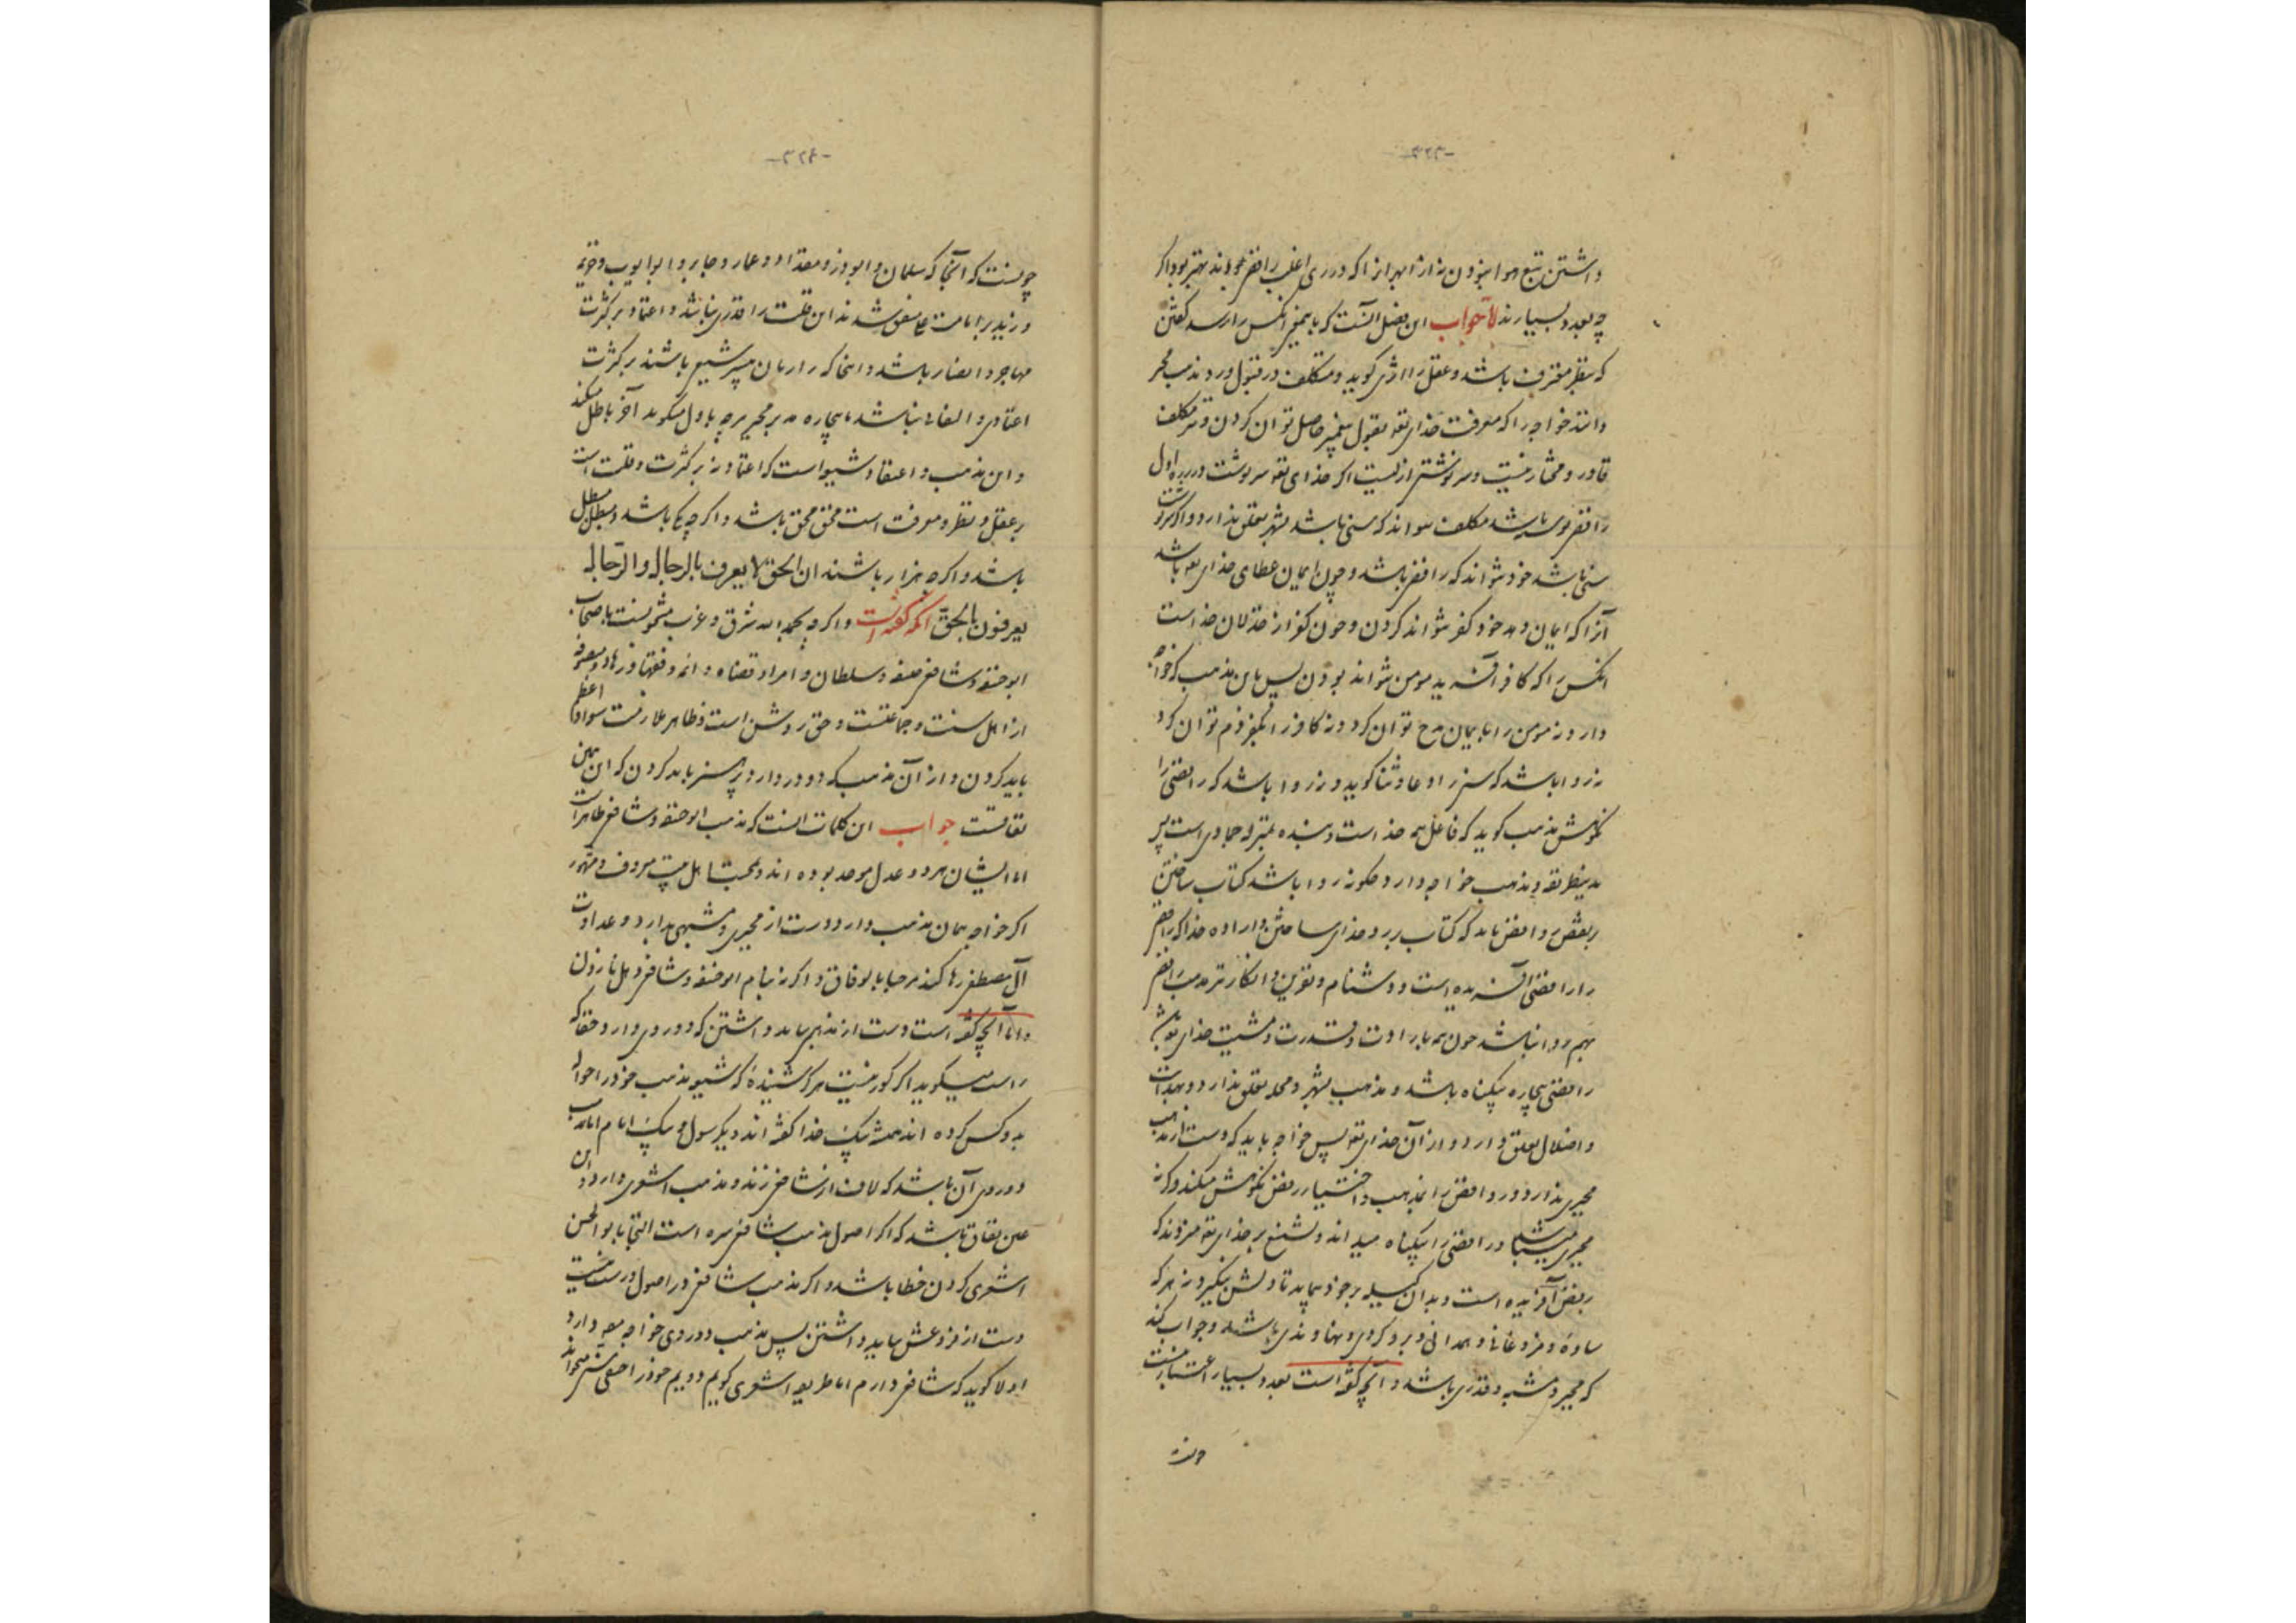 -۳۲۳-
داشتن تبع هوا نبودن نه از امیر از آنکه در ری اغلب رافضی بودند بهتر بود اگر
چه بعدد بسیارند لا جواب این فصل آنست که با پیغمبر آنکس را رسد گفتن
که بنظر معترف باشد و عقل را اثری گوید و مکلف در قبول و رد نه مذهب مجبر
دانند خواجه را که معرفت خدای تعالی بقول پیغمبر حاصل توان کردن و مکلف
قادر و مختار نیست و سرنوشتی ازلیست اگر خدای تعالی سرنوشت در ازل
رافضی باشد مکلف نتواند که سنی باشد بشهر تعلق ندارد و اگر سرنوشت
سنی باشد خود نتواند که رافضی باشد و چون ایمان عطای خدای تعالی باشد
آنرا که ایمان دهد خود کفر نتواند کردن و چون کفر از خذلان خداست
آنکس را که کافر آفریند مومن نتواند بودن پس باین مذهب که خواجه
دارد نه مومن را بایمان مدح توان کرد و نه کافر را بکفر ذم توان کرد
نه روا باشد که سنی را دعا و ثنا گوید و نه روا باشد که رافضی را
نکوهش مذهب گوید که فاعل همه خداست و بنده بمنزله جمادی است پس
بدین طریقه و مذهب خواجه دارد چگونه روا باشد کتاب ساختن
بنقض روافض باید که کتاب بر خدای ساختن و اراده خدا که رافضی
را رافضی آفریده است و دشنام و نفرین و انکار بر مذهب رافضی
هم روا نباشد چون همه بارادت و قدرت و مشیت خدای تعالی باشد
رافضی بیچاره بیگناه باشد و مذهب بشهر و محله تعلق ندارد و بهدایت
و اضلال تعلق دارد از آن خدای تعالی پس خواجه باید که دست از مذهب
مجبری بدارد و روافض را بمذهب و اختیار رفض نکوهش میکند و گرنه
مجبری میباشد و رافضی را بیگناه میداند و تشنیع بر خدای تعالی میزند که
رفض آفریده است و بدان کسیله بر خود نماید تا ولش نگیرد نه هر که
ساوه و مزدغانی و همدانی و بروجردی و نهاوندی باشد و جواب کند
که مجبر و مشبه و قدری باشد و آنچه گفته است بعدد بسیار اعتبار نیست
-۳۲۴-
چونست که آنجا که سلمان و ابوذر و مقداد و عمار و جابر و ابو ایوب و خزیمه
و زید بر امامت علی متفق شدند این قلت را قدری نباشد و اعتماد بر کثرت
مهاجر و انصار باشد و اینجا که رازیان بیشتر شیعی باشند بر کثرت
اعتمادی و التفاتی نباشد بیچاره مدبر مجبر هرچه باول میگوید آخر باطل میکند
و این مذهب و اعتقاد شیعه است که اعتماد نه بر کثرت و قلت است
بر عقل و نظر و معرفت است محق محق باشد و اگر چه یکی باشد و مبطل مبطل
باشد و اگر چه هزار باشند ان الحق لا یعرف بالرجال و الرجال
یعرفون بالحق آنکه گفته است و اگر چه بحمد الله شرق و غرب مشحونست باصحاب
ابو حنیفه و شافعی خلیفه و سلطان و امراء و قضاه و ائمه و فقها و زهاد و متصوفه
از اهل سنت و جماعتست و حق روشن است و ظاهر ملازمت سواد اعظم
باید کردن و از آن مذهب که دو در دارد پرهیز باید کردن که این عین
نفاقست جواب این کلمات آنست که مذهب ابو حنیفه و شافعی ظاهر است
اما ایشان هر دو عدل موحد بوده اند و بمحبت اهل بیت معروف و مشهور
اگر خواجه همان مذهب دارد و دست از مجبری و مشبهی بدارد و عداوت
آل مصطفی رها کند مرحبا بالوفاق و اگر نه بنام ابو حنیفه و شافعی اهل نار زدن
و اما آنچه گفته است دست از مذهبی باید داشتن که دو روی دارد حقا که
راست میگوید اگر کور نیست هرگز شنیده که شیعه مذهب خود را حواله
بدو کس کرده اند همیشه یک خدا گفته اند و یک رسول و یک امام اما مذهب
دو روی آن باشد که لاف از شافعی زند و مذهب اشعری دارد و این
عین نفاق باشد که اگر اصول مذهب شافعی سره است التجا بابو الحسن
اشعری کردن خطا باشد و اگر مذهب شافعی در اصول درست نیست
دست از فروعش بباید داشتن پس مذهب دو روی خواجه دارد
اولا گوید که شافعی دارم اما طریقه اشعری گویم دویم خود را حنفی میخواند